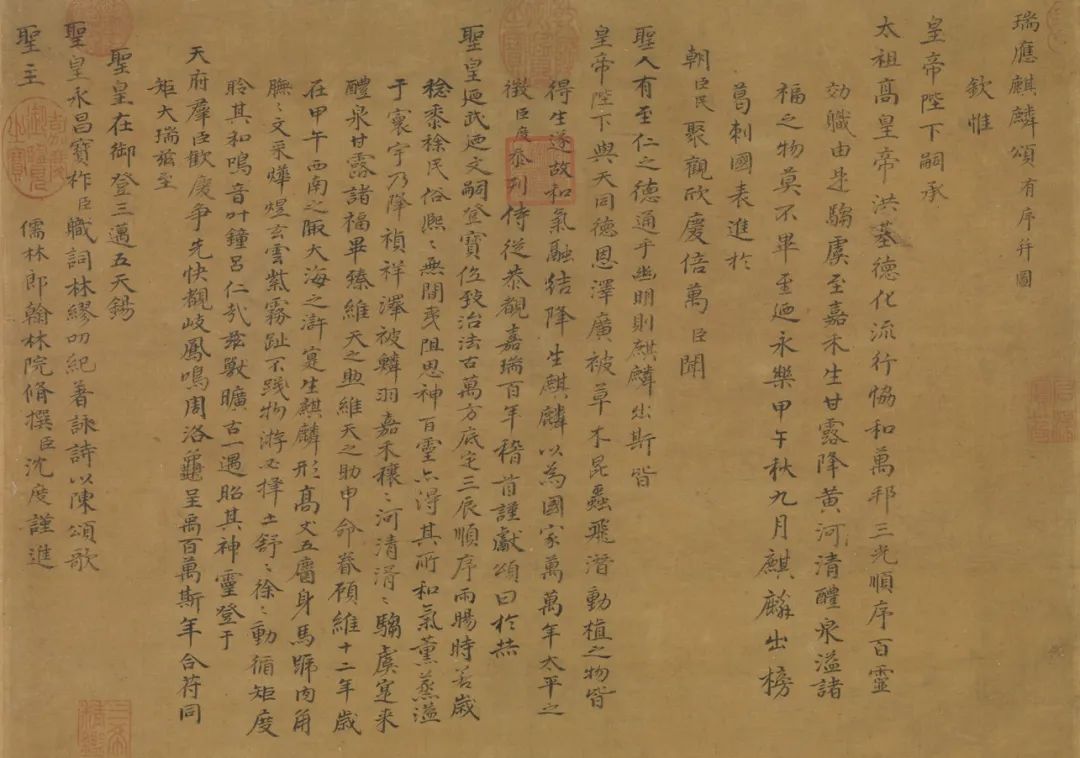 瑞應麒麟頌有序并圖
欽惟
皇帝陛下嗣承
太祖高皇帝洪基德化流行協和萬邦三光順序百靈
効職由是騶虞至嘉禾生甘露降黄河清醴泉溢諸
福之物莫不畢至迺永樂甲午秋九月麒麟出榜
葛剌國表進於
朝臣民聚觀欣慶倍萬臣聞
聖人有至仁之德通乎幽明則麒麟出斯皆
皇帝陛下與天同德恩澤廣被草木昆蟲飛潛動植之物皆
得生遂故和氣融結降生麒麟以為國家萬萬年太平之
徵臣度忝列侍從恭觀嘉瑞百年稽首謹獻頌曰於赫
聖皇迺武迺文嗣登寶位致治法古萬方底定三辰順序雨暘時若歲
稔黍稌民俗熙〻無間夷阻思神百靈亦得其所和氣薰蒸溢
于寰宇乃降禎祥澤被鱗羽嘉禾穰〻河清湑〻騶虞寔来
醴泉甘露諸福畢臻維天之與維天之助申命眷顧維十二年歲
在甲午西南之陬大海之滸寔生麒麟形髙丈五麕身馬蹄肉角
膴〻文采燁煜玄雲紫霧趾不踐物游必擇土舒〻徐〻動循矩度
聆其和鳴音叶鐘呂仁哉茲獸曠古一遇昭其神靈登于
天府羣臣歡慶争先快覩岐鳳鳴周洛龜呈禹百萬斯年合符同
矩大瑞茲至
聖皇在御登三邁五天錫
聖皇永昌寶祚臣職詞林繆叨紀著詠詩以陳頌歌
聖主
儒林郎翰林院脩撰臣沈度謹進